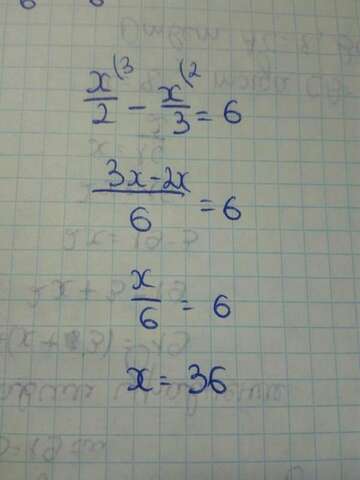 x⁽³/2 - x⁽²/3 = 6
3x-2x/6 = 6
x/6 = 6
x = 36